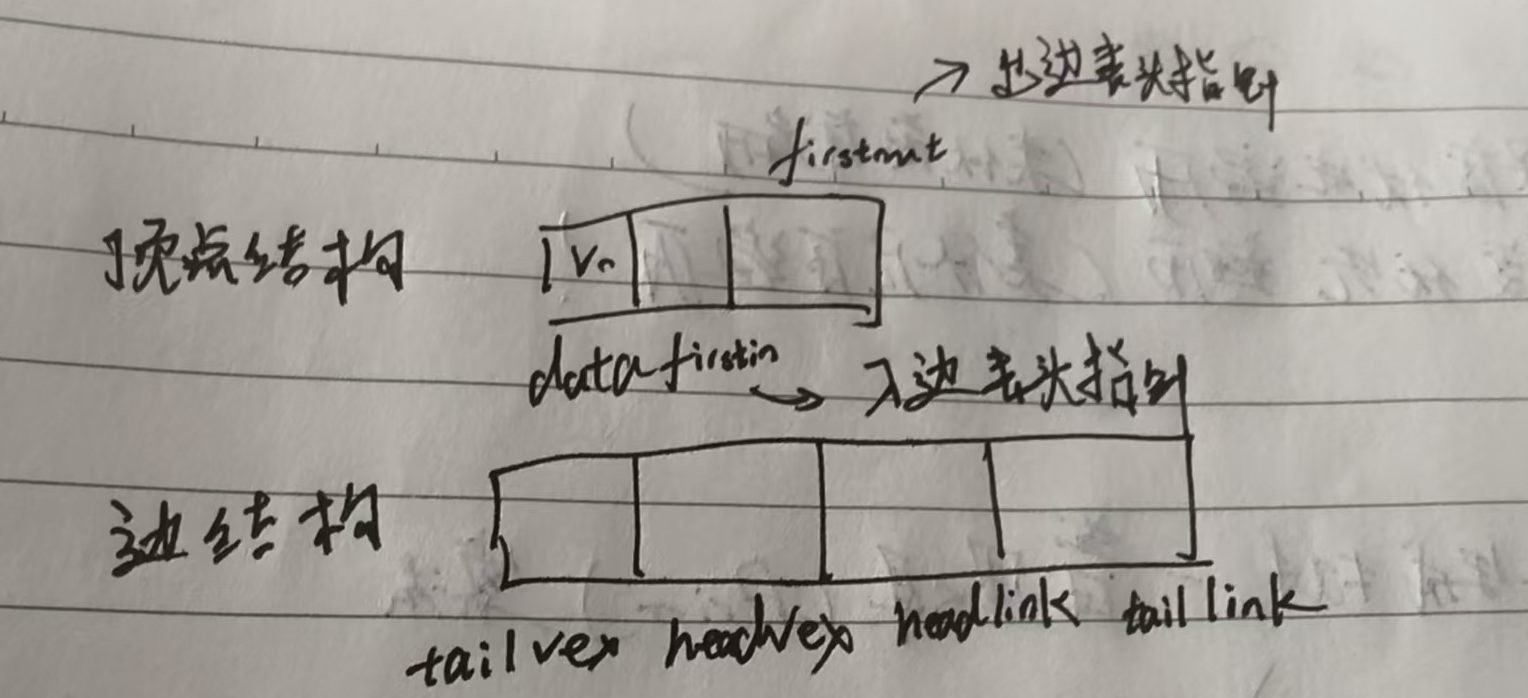 → 出边表头指针
firstout
顶点结构 V₀
data firstin → 入边表头指针
边结构
tailvex headvex headlink taillink